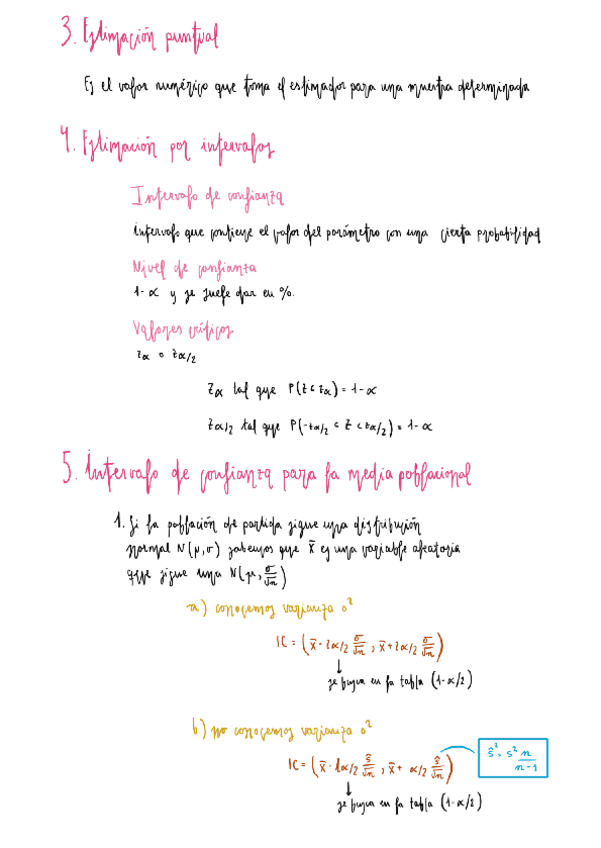 3. Estimación puntual
Es el valor numérico que toma el estimador para una muestra determinada
4. Estimación por intervalos
Intervalo de confianza
intervalo que contiene el valor del parámetro con una cierta probabilidad
Nivel de confianza
1-α y se suele dar en %.
Valores críticos
zα o zα/2
zα tal que P(z<zα) = 1-α
zα/2 tal que P(-zα/2 < z < zα/2) = 1-α
5. Intervalo de confianza para la media poblacional
1. Si la población de partida sigue una distribución
normal N(μ,σ) sabemos que x̄ es una variable aleatoria
que sigue una N(μ, σ/√n)
a) conocemos varianza σ²
IC = (x̄ - zα/2 σ/√n ; x̄ + zα/2 σ/√n)
↓
se busca en la tabla (1-α/2)
b) no conocemos varianza σ²
IC = (x̄ - tα/2 ŝ/√n ; x̄ + α/2 ŝ/√n)
ŝ² = s² n/n-1
↓
se busca en la tabla (1-α/2)